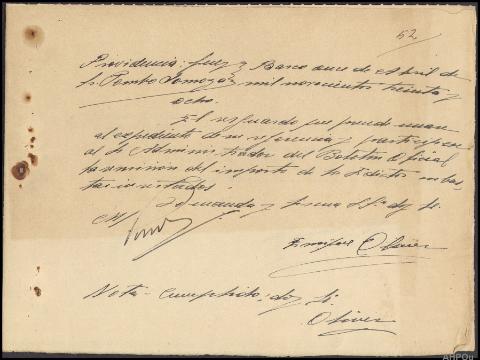 52
Providencia: Juez y Barco once de Abril de
Sr. Pombo Somoza mil novecientos treinta y
ocho.
El resguardo que precede unase
al expediente de su referencia y participese
al Sr. Administrador del Boletin Oficial
la remisión del importe de los Edictos
Lo mandó y firma S.Sª doy fe.
Oliver
Nota - Cumplido; doy fe.
Oliver
AHPOu